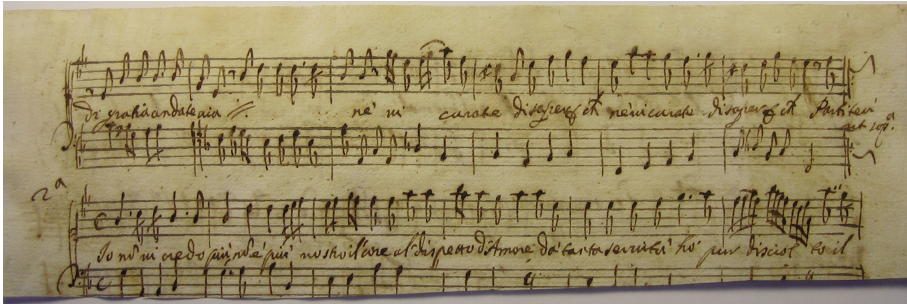 di gratia andate via //. ne vi curate di saper ne vi curate di saper Partitevi
ut sopª.
2ª
Io nõ vi credo più, nõ è più nostro il core al dispetto d'Amore, da tanta servitù ho pur disciolto il